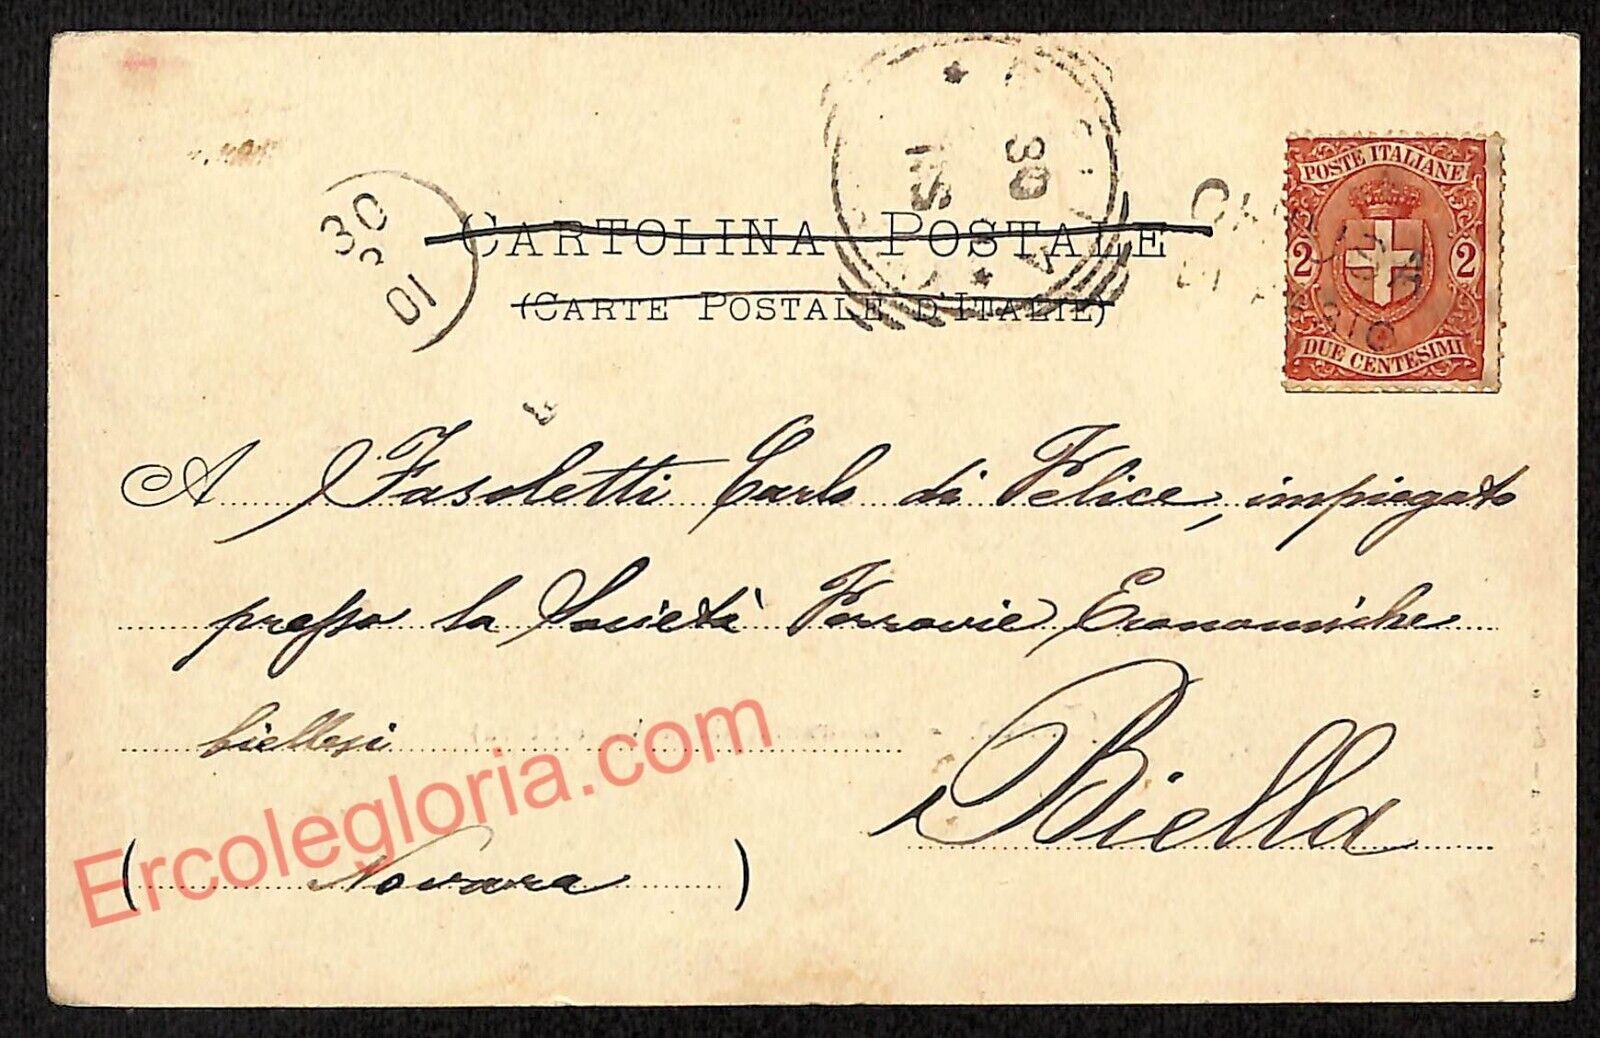 CARTOLINA POSTALE
(CARTE POSTALE D'ITALIE)
30
01
30
POSTE ITALIANE
2 2
DUE CENTESIMI
A Fasoletti Carlo di Felice, impiegato
presso la Società Ferrovie Economiche
biellesi
Biella
(Novara)
Ercolegloria.com